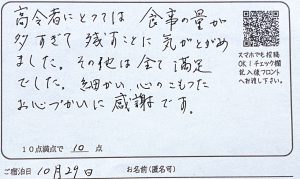 高令者にとっては 食事の量が
多すぎて残すことに気がとがめ
ました。その他は全て満足
でした。細かい心のこもった
お心づかいに感謝です。
スマホでも投稿
OK!チェック欄
記入後フロント
へお渡し下さい。
10点満点で 10 点
ご宿泊日 10月29日 お名前(匿名可)